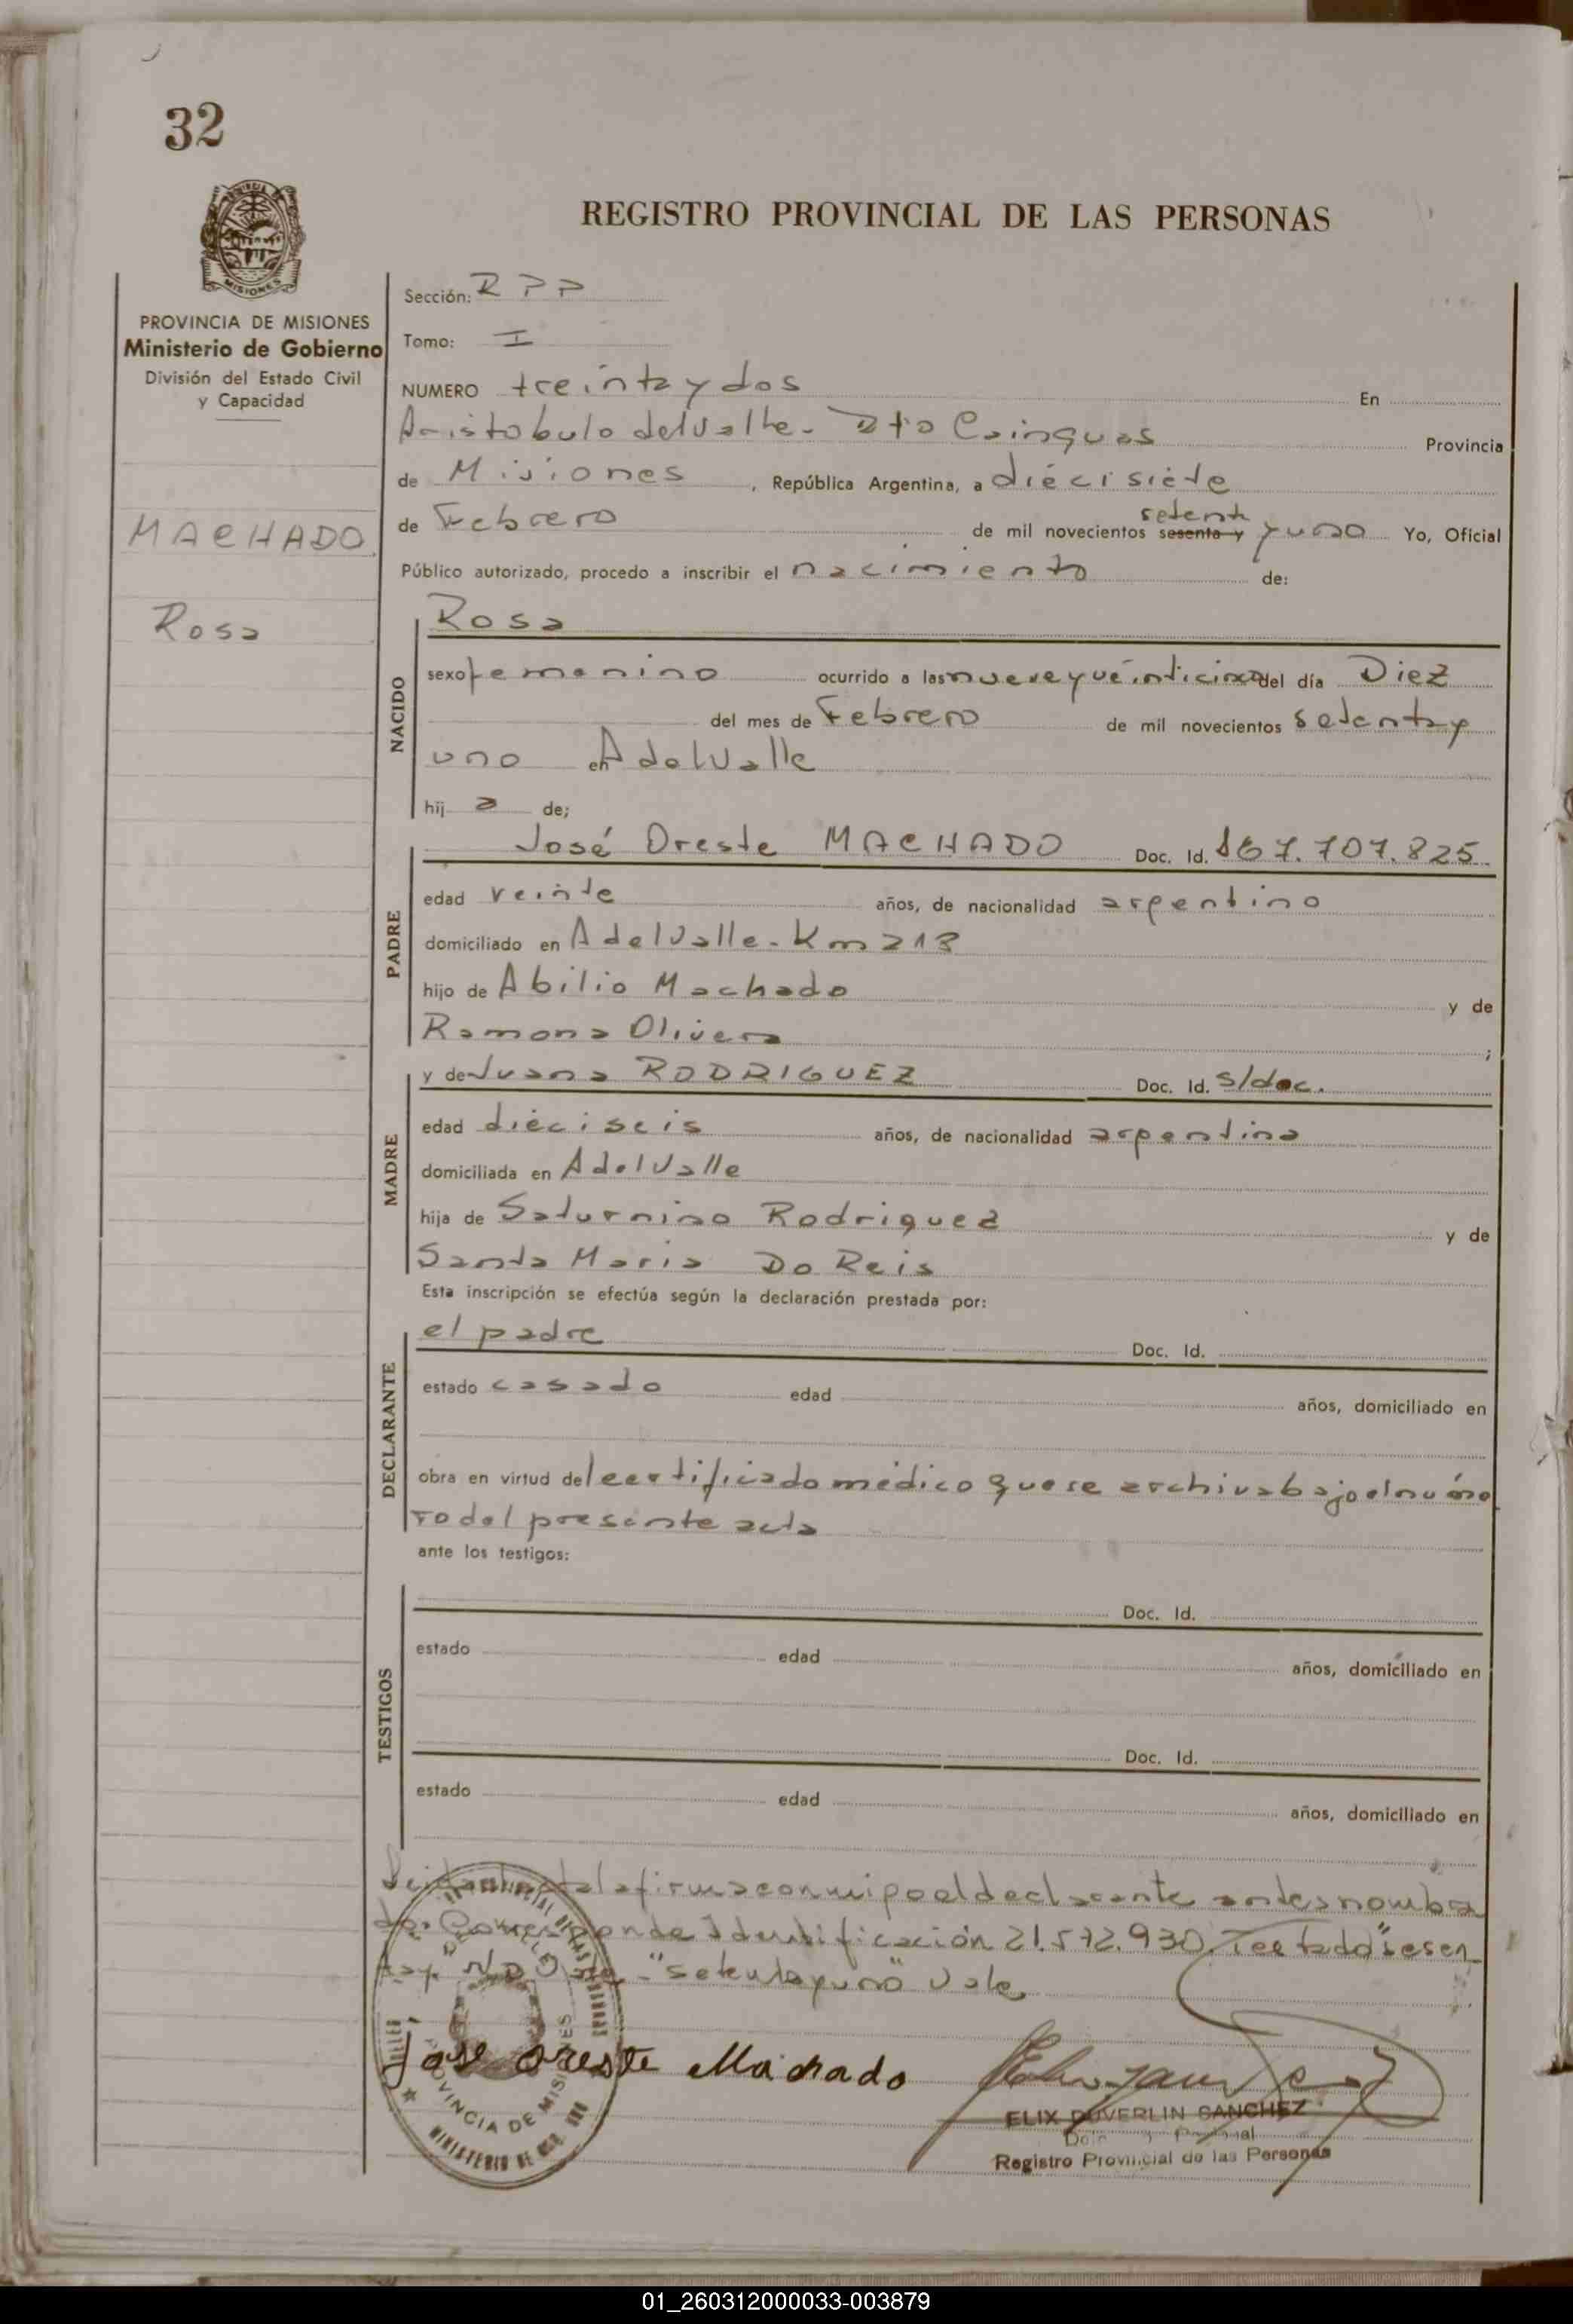 32
REGISTRO PROVINCIAL DE LAS PERSONAS
MISIONES
PROVINCIA DE MISIONES
Ministerio de Gobierno
División del Estado Civil
y Capacidad
MACHADO
Rosa
Sección: RPP
Tomo: I
NUMERO treinta y dos En
Aristobulo del Valle - Dto Cainguas Provincia
de Misiones, República Argentina, a diécisiete
setenta
de Febrero de mil novecientos sesenta y y uno Yo, Oficial
Público autorizado, procedo a inscribir el nacimiento de:
NACIDO
Rosa
sexo femenino ocurrido a las nueve y veinticinco del día Diez
del mes de Febrero de mil novecientos setenta y
uno en A del Valle
hij a de;
PADRE
José Oreste MACHADO Doc. Id. 7.707.825
edad veinte años, de nacionalidad argentino
domiciliado en A del Valle - Km 213
hijo de Abilio Machado y de
Ramona Olivera ;
MADRE
y de Juana RODRIGUEZ Doc. Id. s/doc.
edad dieciseis años, de nacionalidad argentina
domiciliada en A del Valle
hija de Saturnino Rodriguez y de
Santa Maria Do Reis
Esta inscripción se efectúa según la declaración prestada por:
DECLARANTE
el padre Doc. Id.
estado casado edad años, domiciliado en
obra en virtud del certificado médico que se archiva bajo el núme
ro del presente acta
ante los testigos:
TESTIGOS
Doc. Id.
estado edad años, domiciliado en
Doc. Id.
estado edad años, domiciliado en
la firma conmigo el declarante antes nombra
do. Corresponde Identificación 21.572.930. Testado "sesen
ta y "setenta y uno" Vale
José Oreste Machado
ELIX DUVERLIN SANCHEZ
Registro Provincial de las Personas
PROVINCIA DE MISIONES
MINISTERIO DE
01_260312000033-003879